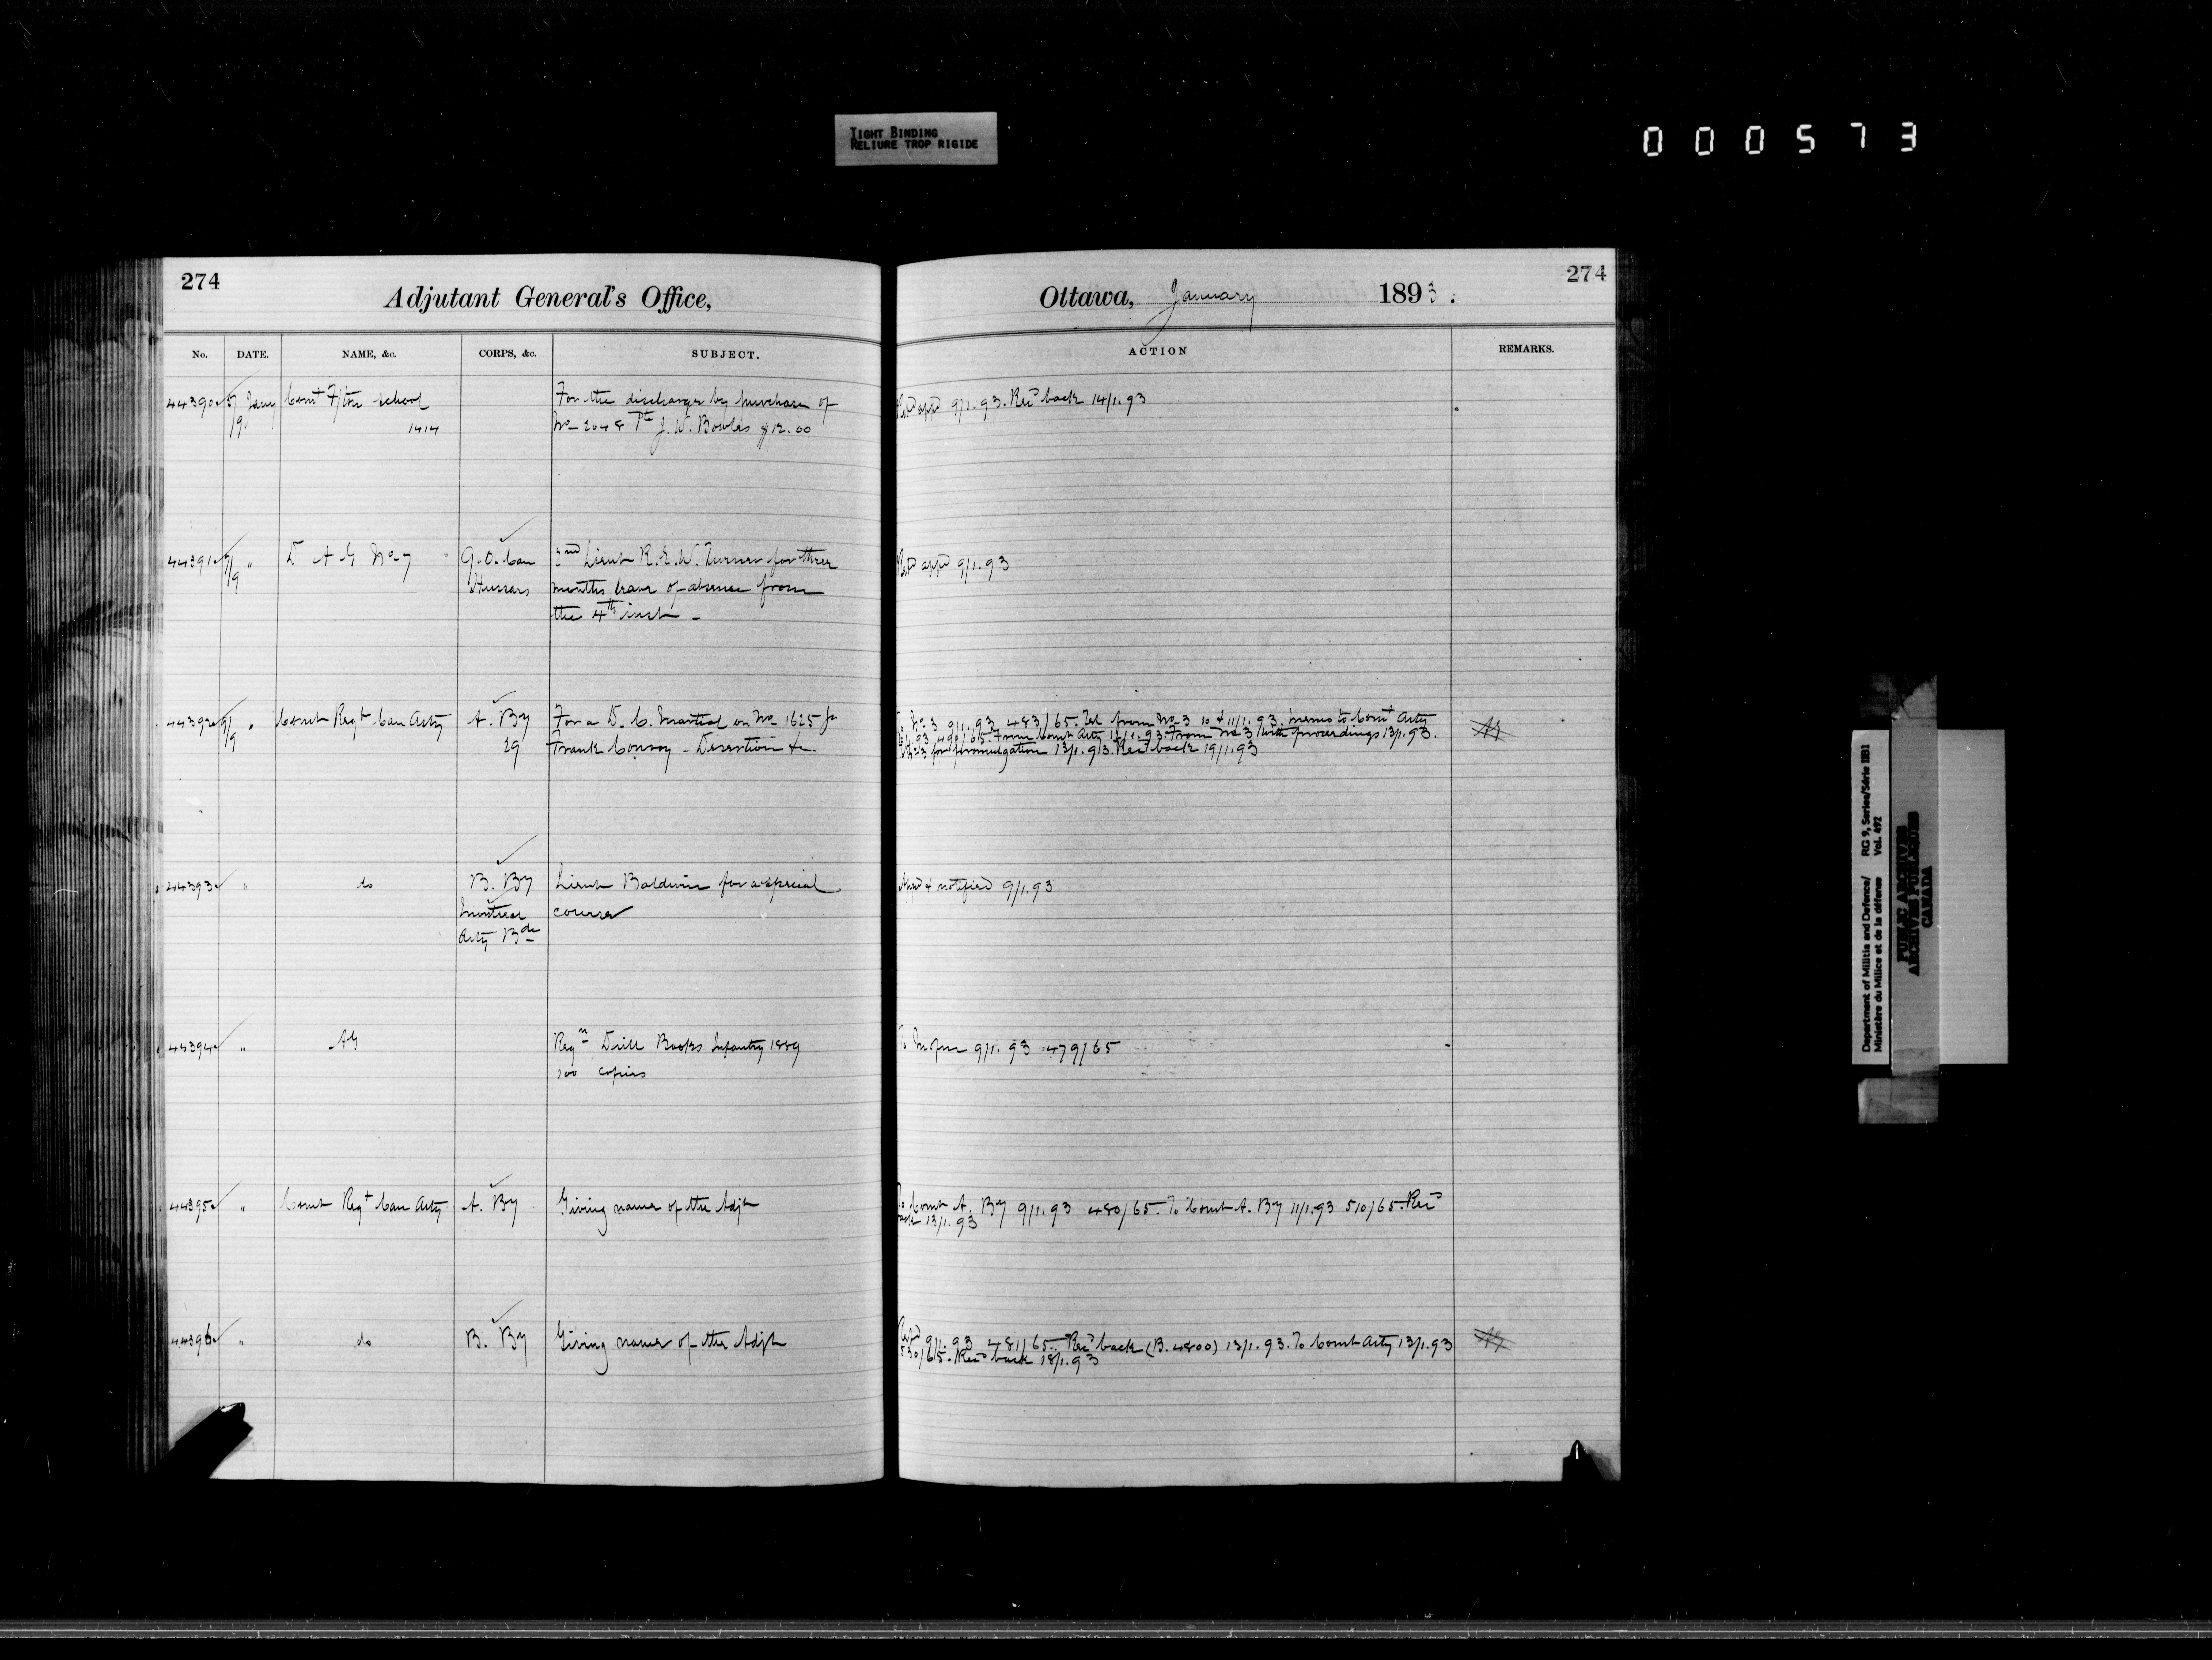 TIGHT BINDING
RELIURE TROP RIGIDE
000573
274
Adjutant General's Office,
Ottawa, January 1893.
274
No. DATE. NAME, &c. CORPS, &c. SUBJECT. ACTION REMARKS.
44390 5/9 Jany Comt F/ton School
1414
For the discharge by purchase of
No 2048 Pte J. W. Bowles $12.00
Retd appd 9/1.93. Recd back 14/1.93
44391 7/9 " D A G No 7
Q.O. Can
Hussars
2nd Lieut R.E.W. Turner for three
months leave of absence from
the 4th inst -
Retd appd 9/1.93
44392 9/9 " Comt Regt Can Arty
A. By
29
For a D. C. Martial on No 1625 Gr
Frank Conroy - Desertion &c
To No 3 9/1.93 483/65. Tel from No 3 10 & 11/1.93. Memo to Comt Arty
491/65. From Comt Arty 12/1.93. From No 3 with proceedings 13/1.93.
To No 3 for promulgation 13/1.93. Recd back 19/1.93
44393 " do
B. By
Montreal
Arty Bde
Lieut Baldwin for a special
course
Appd & notified 9/1.93
44394 " AG
Reqn Drill Books Infantry 1889
100 copies
9/1.93 479/65
44395 " Comt Regt Can Arty
A. By
Giving names of the Adjt
To Comt A. By 9/1.93 480/65. To Comt A. By 11/1.93 510/65. Recd
back 13/1.93
44396 " do
B. By
Giving names of the Adjt
9/1.93 481/65. Recd back (B.4800) 13/1.93. To Comt Arty 13/1.93
530/65. Recd back 18/1.93
Department of Militia and Defence/ RG 9, Series/Série IIB1
Ministère du Milice et de la défense Vol. 492
PUBLIC ARCHIVES
ARCHIVES PUBLIQUES
CANADA